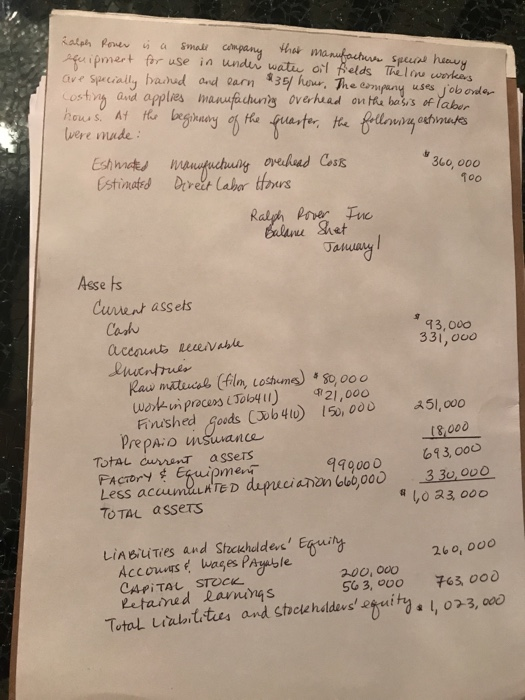 Ralph Rover is a small company that manufactures special heavy
equipment for use in under water oil fields The line workers
are specially trained and earn $35/hour. The company uses job order
costing and applies manufacturing overhead on the basis of labor
hours. At the beginning of the quarter, the following estimates
were made:
Estimated manufacturing overhead Costs $360,000
Estimated Direct Labor Hours 900
Ralph Rover Inc
Balance Sheet
January 1
Assets
Current assets
Cash $93,000
accounts receivable 331,000
Inventories
Raw materials (film, costumes) $80,000
Work in process (Job 411) 21,000
Finished goods (Job 410) 150,000 251,000
Prepaid insurance 18,000
TOTAL current assets 693,000
FACTORY & Equipment 990,000
Less accumulated depreciation 660,000 330,000
TOTAL ASSETS $1,023,000
LIABILITIES and Stockholders' Equity
Accounts & wages PAyable 260,000
CAPITAL STOCK 200,000
Retained earnings 563,000 763,000
Total Liabilities and stockholders' equity $1,023,000